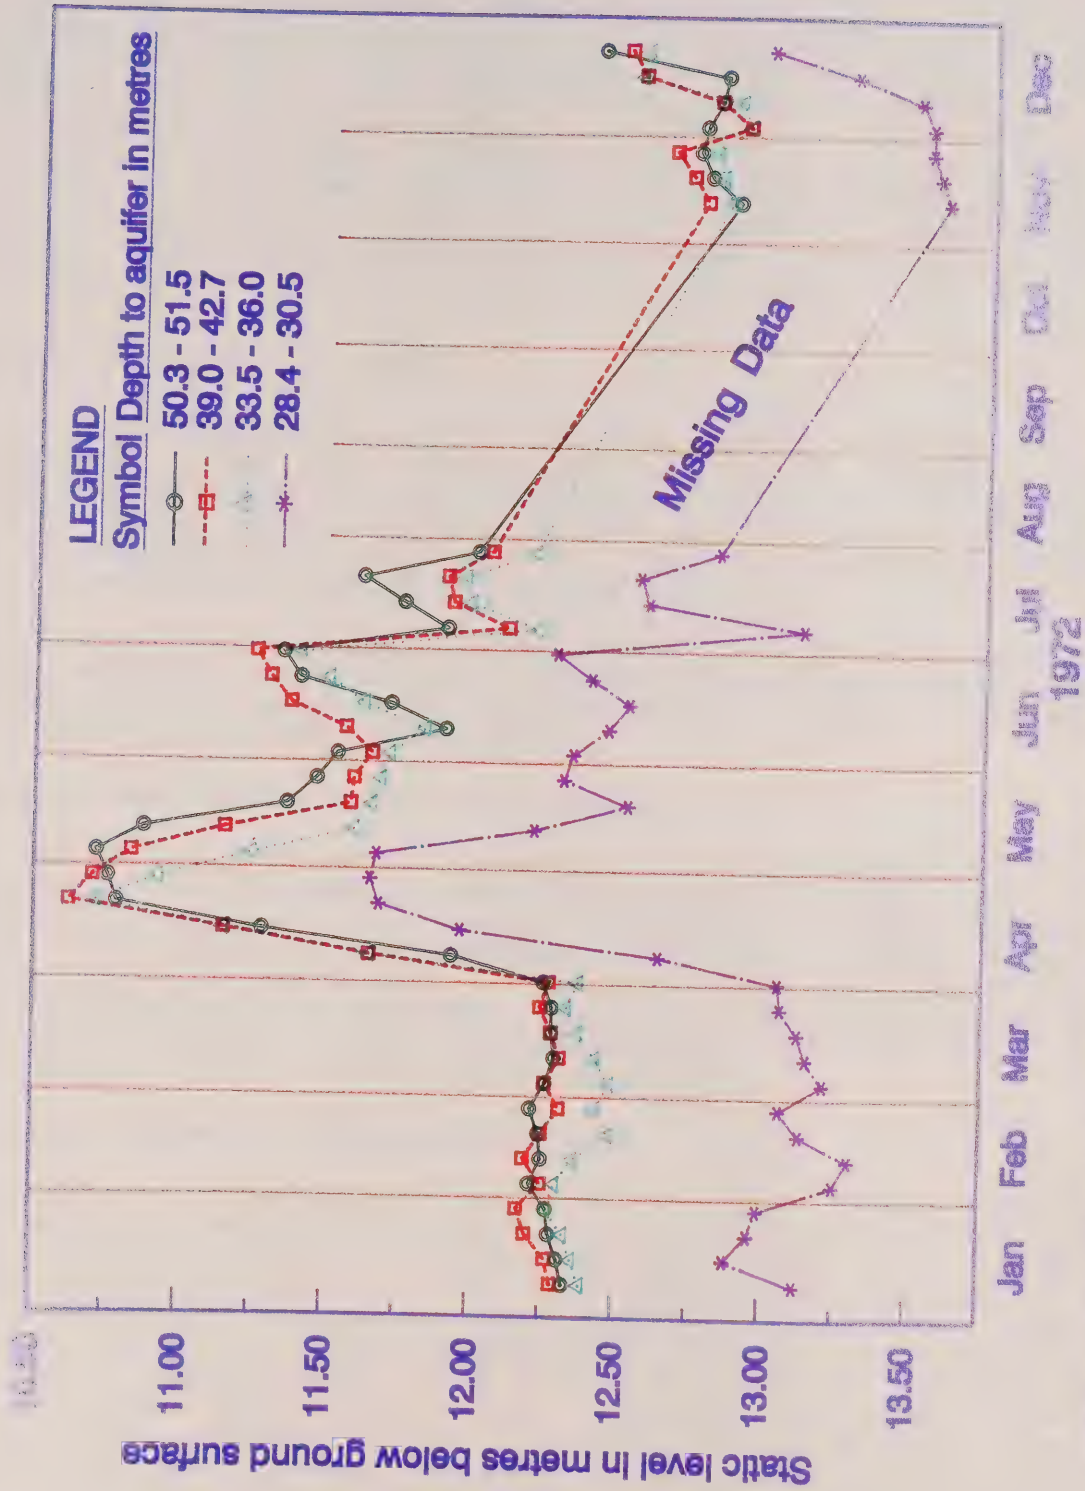 LEGEND
Symbol Depth to aquifer in metres
50.3 - 51.5
39.0 - 42.7
33.5 - 36.0
28.4 - 30.5
Missing Data
Static level in metres below ground surface
11.00
11.50
12.00
12.50
13.00
13.50
Jan Feb Mar Apr May Jun Jul Aug Sep Oct Nov Dec
1972